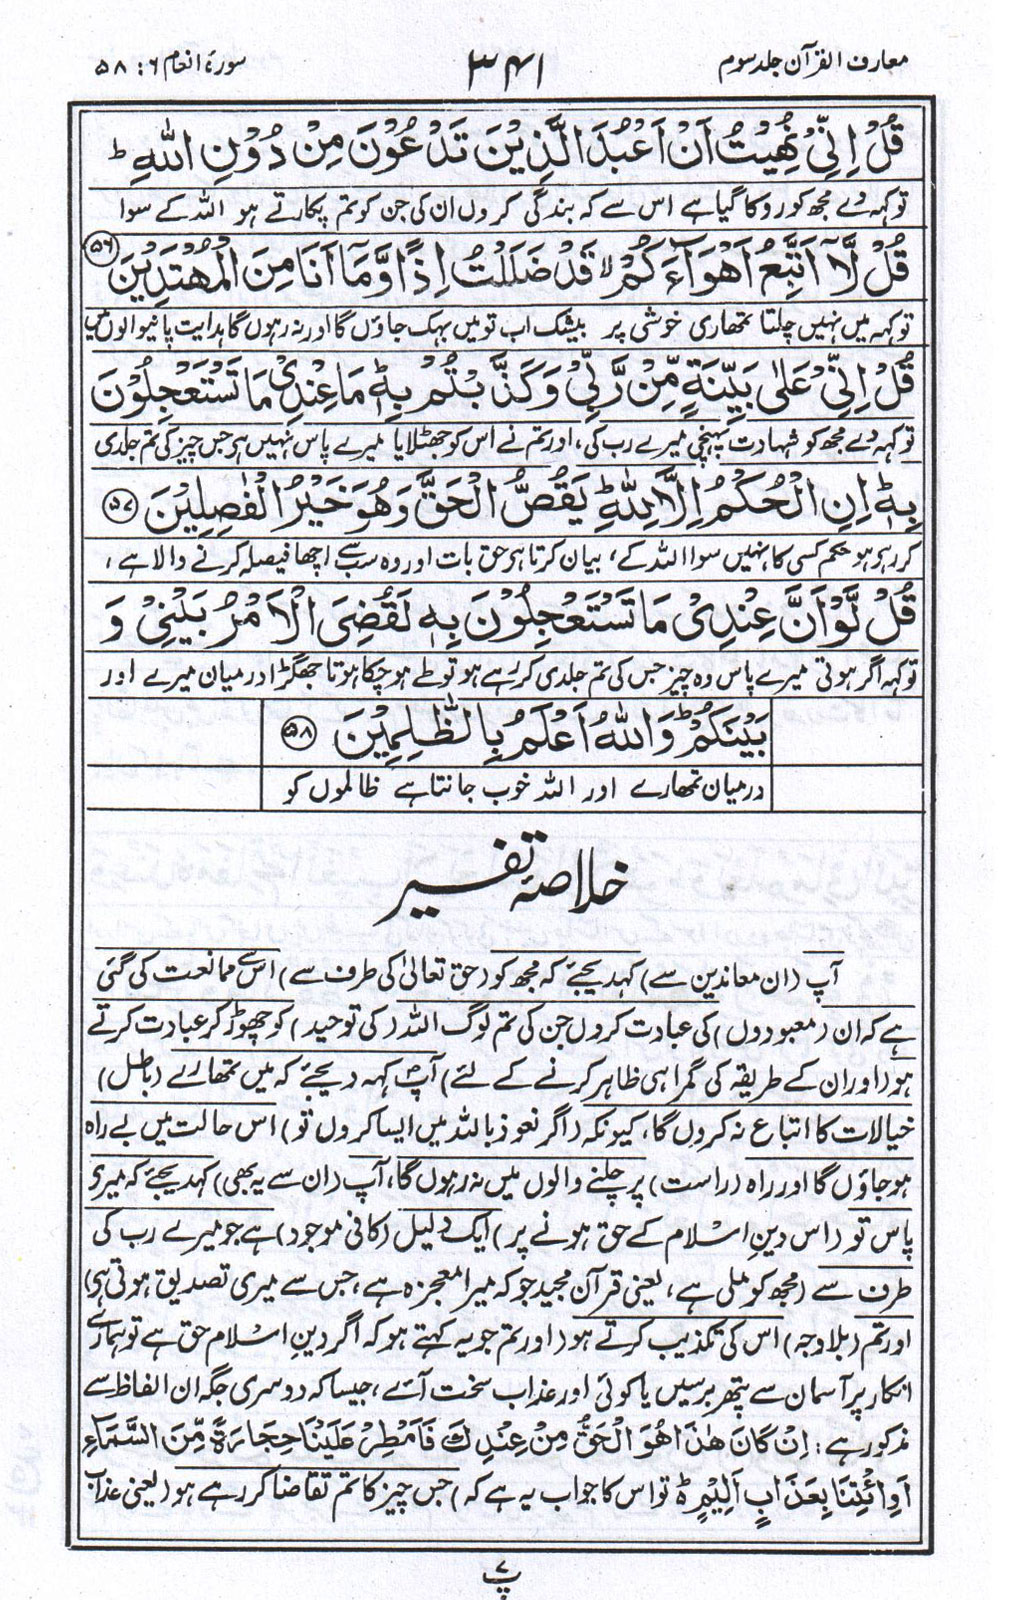 معارف القرآن جلد سوم
۳۴۱
سورۂ انعام ۶: ۵۸
قُلْ اِنِّیْ نُهِیْتُ اَنْ اَعْبُدَ الَّذِیْنَ تَدْعُوْنَ مِنْ دُوْنِ اللّٰهِ ؕ
تو کہہ دے مجھ کو روکا گیا ہے اس سے کہ بندگی کروں ان کی جن کو تم پکارتے ہو اللہ کے سوا
قُلْ لَّاۤ اَتَّبِعُ اَهْوَآءَكُمْ ۙ قَدْ ضَلَلْتُ اِذًا وَّمَاۤ اَنَا مِنَ الْمُهْتَدِیْنَ ﴿۵۶﴾
تو کہہ میں نہیں چلتا تمھاری خوشی پر بیشک اب تو میں بہک جاؤں گا اور نہ رہوں گا ہدایت پانیوالوں میں
قُلْ اِنِّیْ عَلٰی بَیِّنَةٍ مِّنْ رَّبِّیْ وَكَذَّبْتُمْ بِهٖ ؕ مَا عِنْدِیْ مَا تَسْتَعْجِلُوْنَ
تو کہہ دے مجھ کو شہادت پہنچی میرے رب کی، اور تم نے اس کو جھٹلایا میرے پاس نہیں ہی جس چیز کی تم جلدی
بِهٖ ؕ اِنِ الْحُكْمُ اِلَّا لِلّٰهِ ؕ یَقُصُّ الْحَقَّ وَهُوَ خَیْرُ الْفٰصِلِیْنَ ﴿۵۷﴾
کر رہے ہو حکم کسی کا نہیں سوا اللہ کے، بیان کرتا ہی حق بات اور وہ سب سے اچھا فیصلہ کرنے والا ہے،
قُلْ لَّوْ اَنَّ عِنْدِیْ مَا تَسْتَعْجِلُوْنَ بِهٖ لَقُضِیَ الْاَمْرُ بَیْنِیْ وَ
تو کہہ اگر ہوتی میرے پاس وہ چیز جس کی تم جلدی کر رہے ہو تو طے ہو چکا ہوتا جھگڑا درمیان میرے اور
بَیْنَكُمْ ؕ وَاللّٰهُ اَعْلَمُ بِالظّٰلِمِیْنَ ﴿۵۸﴾
درمیان تمھارے اور اللہ خوب جانتا ہے ظالموں کو
خلاصۂ تفسیر
آپ (ان معاندین سے) کہہ دیجئے کہ مجھ کو (حق تعالیٰ کی طرف سے) اس سے ممانعت کی گئی
ہے کہ ان (معبودوں) کی عبادت کروں جن کی تم لوگ اللہ (کی توحید) کو چھوڑ کر عبادت کرتے
ہو (اور ان کے طریقہ کی گمراہی ظاہر کرنے کے لئے) آپ کہہ دیجئے کہ میں تمھارے (باطل)
خیالات کا اتباع نہ کروں گا، کیونکہ (اگر نعوذ باللہ میں ایسا کروں تو) اس حالت میں بے راہ
ہو جاؤں گا اور راہ (راست) پر چلنے والوں میں نہ رہوں گا، آپ (ان سے یہ بھی) کہہ دیجئے کہ میرے
پاس تو (اس دینِ اسلام کے حق ہونے پر) ایک دلیل (کافی موجود) ہے جو میرے رب کی
طرف سے (مجھ کو ملی ہے، یعنی قرآن مجید جو کہ میرا معجزہ ہے، جس سے میری تصدیق ہوتی ہی)
اور تم (بلا وجہ) اس کی تکذیب کرتے ہو (اور تم جو یہ کہتے ہو کہ اگر دینِ اسلام حق ہے تو ہمارے
انکار پر آسمان سے پتھر برسیں یا کوئی اور عذاب سخت آئے، جیسا کہ دوسری جگہ ان الفاظ سے
مذکور ہے: اِنْ كَانَ هٰذَا هُوَ الْحَقَّ مِنْ عِنْدِكَ فَاَمْطِرْ عَلَیْنَا حِجَارَةً مِّنَ السَّمَآءِ
اَوِ ائْتِنَا بِعَذَابٍ اَلِیْمٍ ؕ تو اس کا جواب یہ ہے کہ) جس چیز کا تم تقاضا کر رہے ہو (یعنی عذاب
پ۷